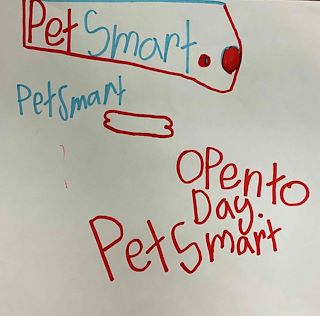 Pet Smart.
PetSmart
OPen to
Day.
PetSmart